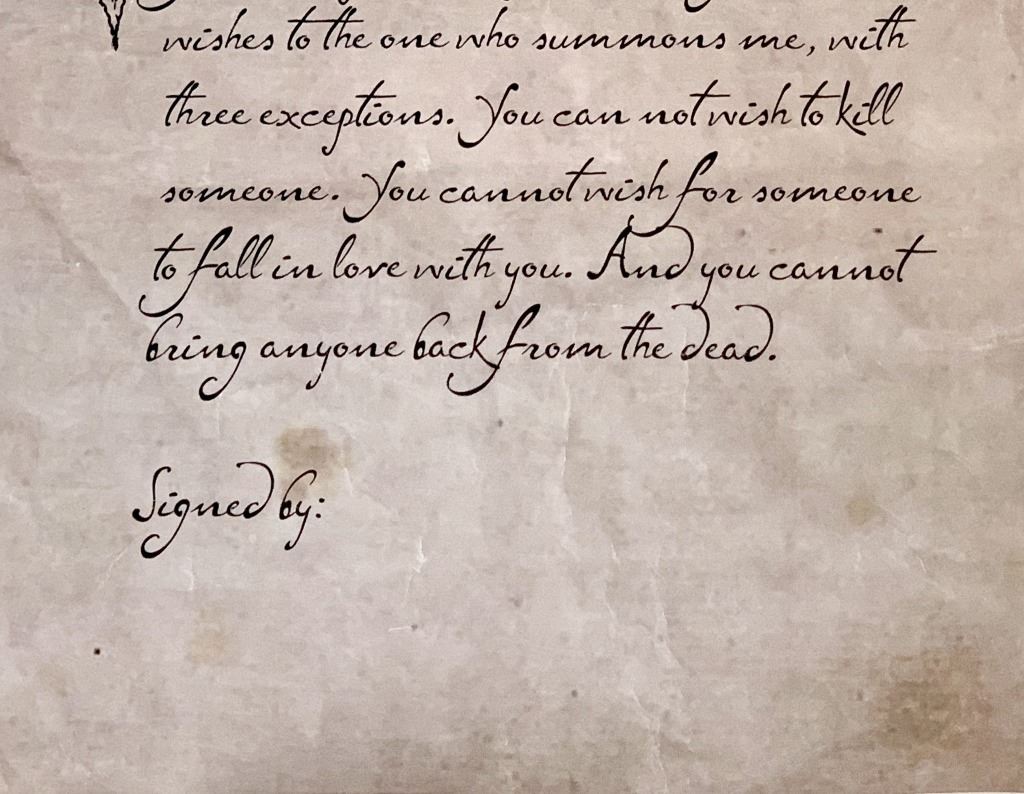 wishes to the one who summons me, with
three exceptions. You can not wish to kill
someone. You cannot wish for someone
to fall in love with you. And you cannot
bring anyone back from the dead.
Signed by: